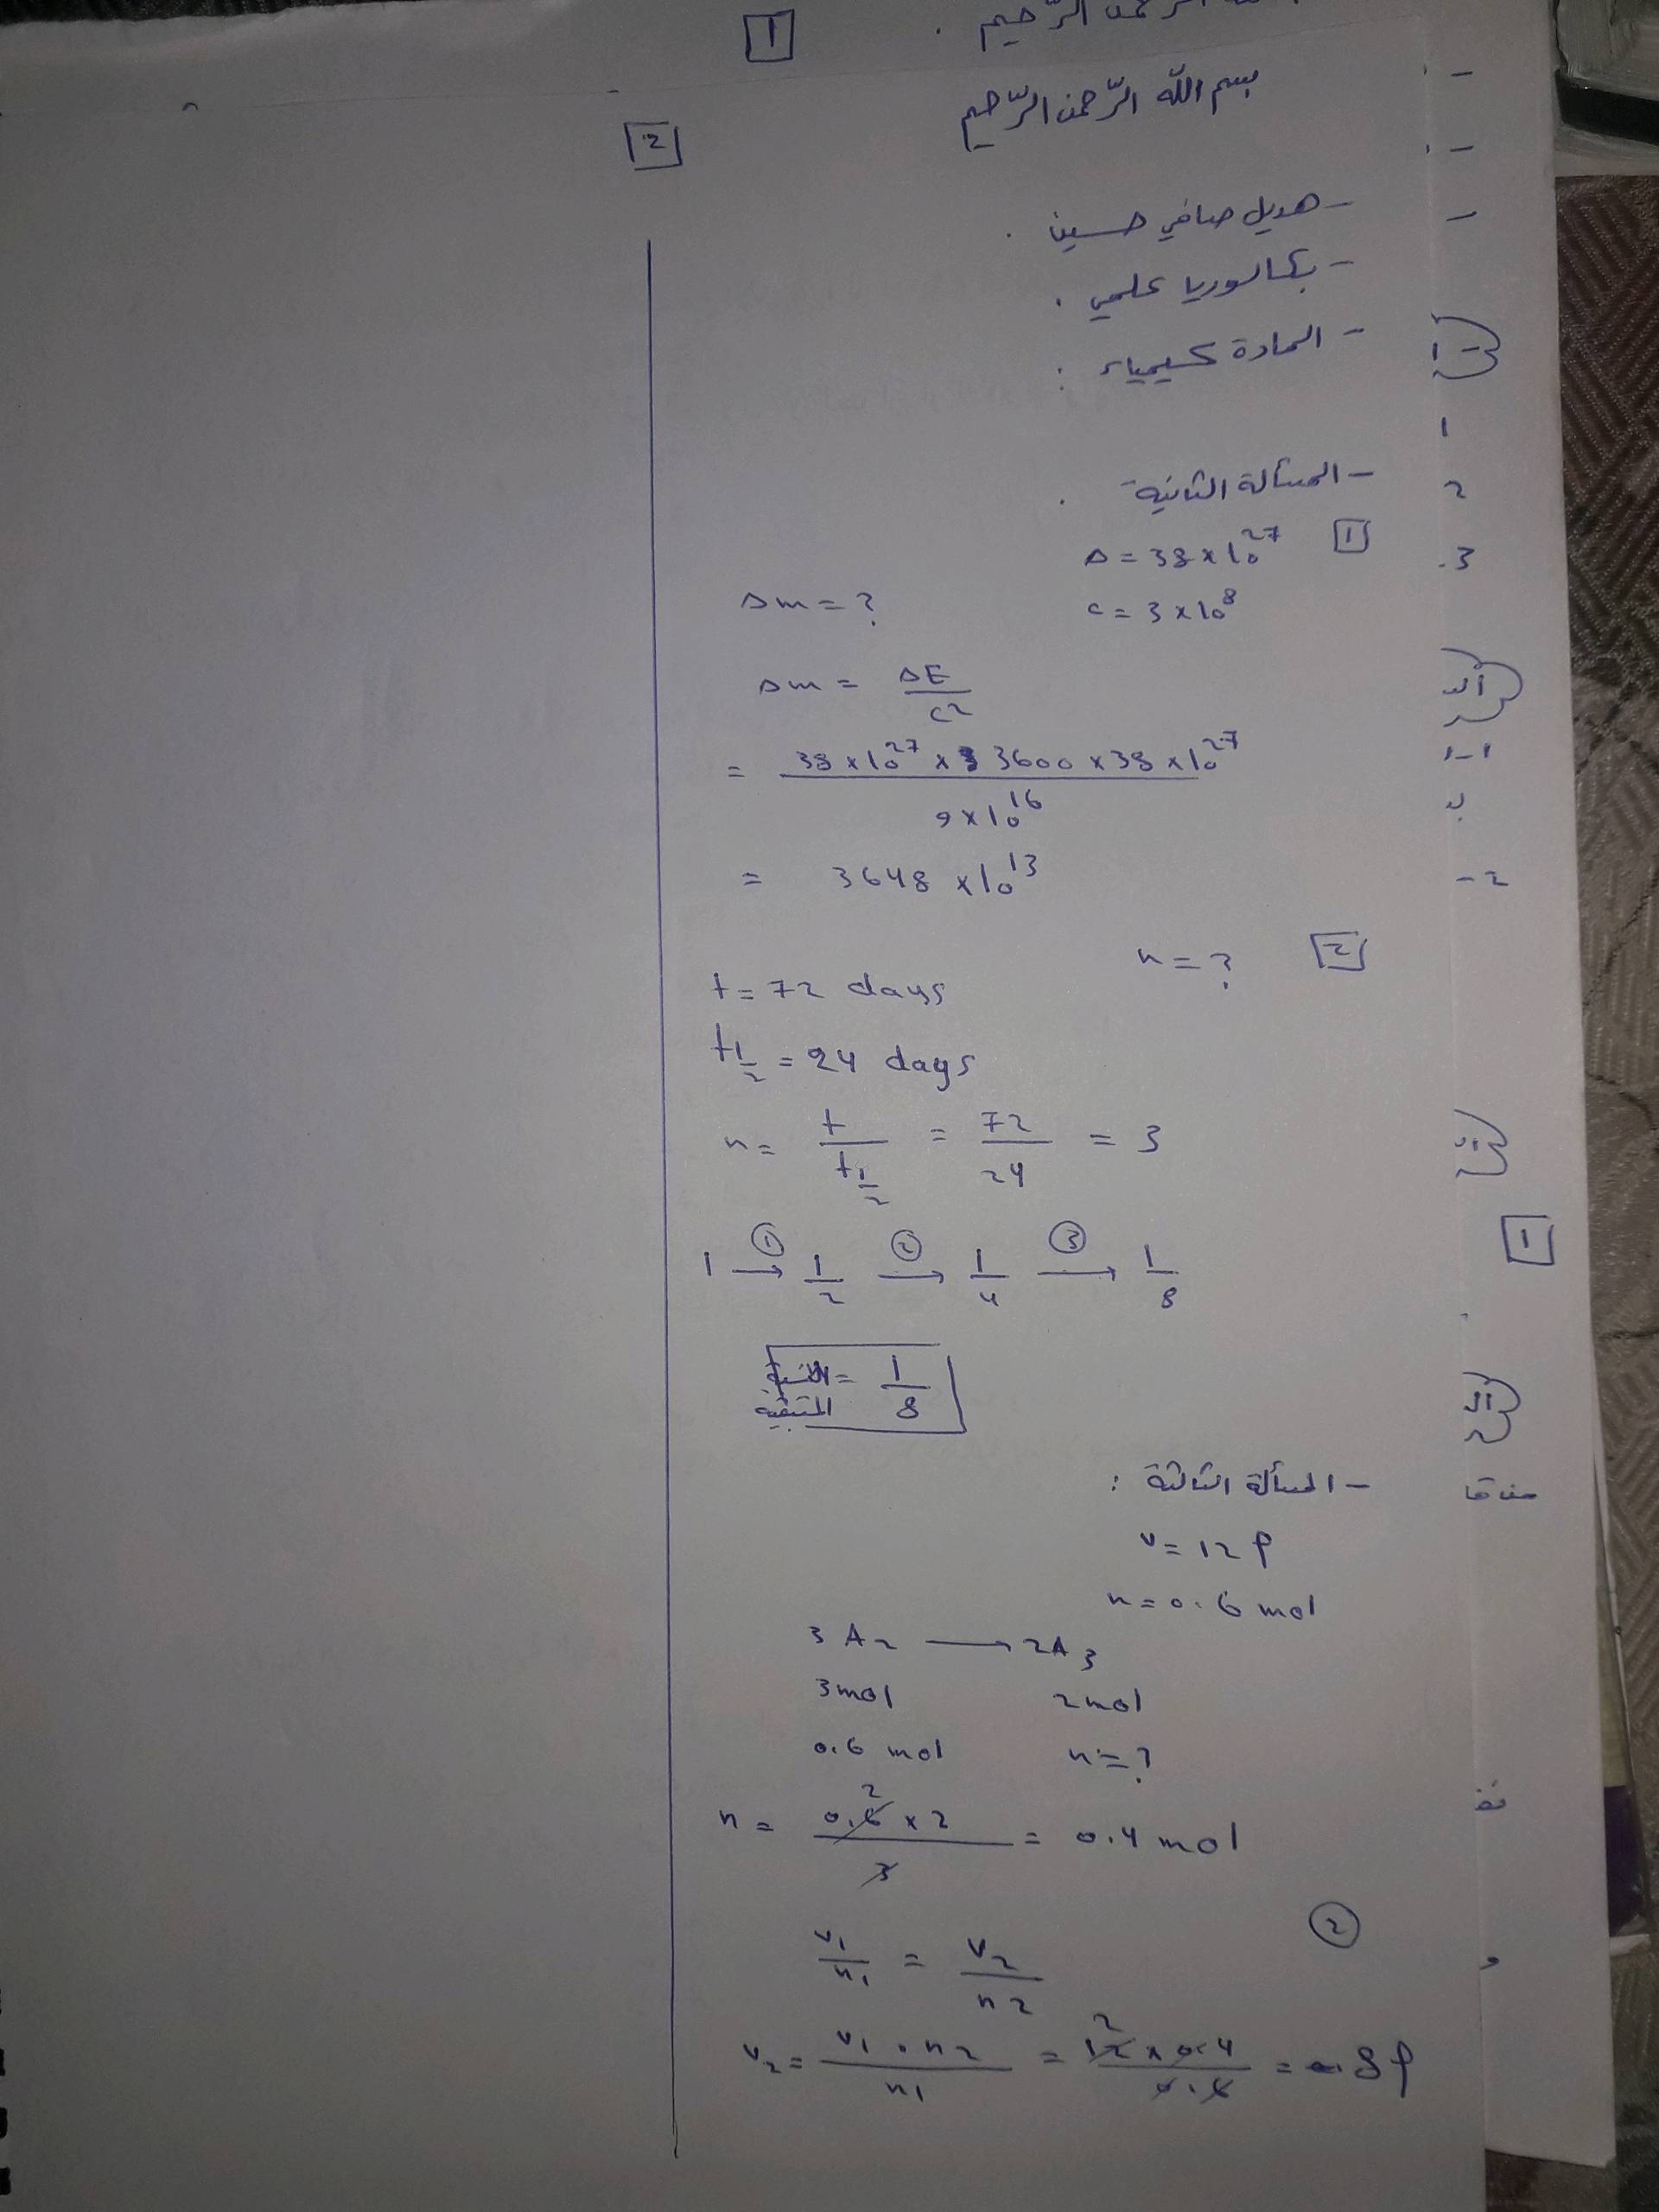 الرّحمن الرّحيم .
1
بسم الله الرّحمن الرّحيم
2
- هديل صافي حسين .
- بكالوريا علمي .
- المادة كيمياء :
- المسألة الثانية .
1 Δ = 38 × 10^27
c = 3 × 10^8
Δm = ?
Δm = ΔE / c2
= 38 × 10^27 × 3600 × 38 × 10^27 / 9 × 10^16
= 3648 × 10^13
2 n = ?
t = 72 days
t1/2 = 24 days
n = t / t1/2 = 72 / 24 = 3
1 →① 1/2 →② 1/4 →③ 1/8
النسبة المتبقية = 1/8
- المسألة الثالثة :
v = 12 l
n = 0.6 mol
3 A2 → 2A3
3mol 2mol
0.6 mol n = ?
n = 0.6 × 2 / 3 = 0.4 mol
②
v1 / n1 = v2 / n2
v2 = v1 . n2 / n1 = 12 × 0.4 / 0.6 = 8 l
1
2
3